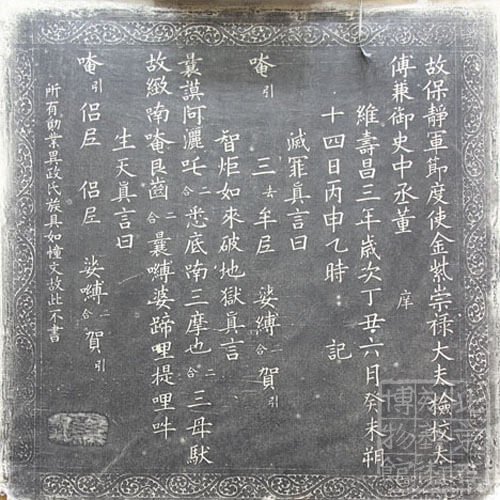 故保靜軍節度使金紫崇祿大夫檢校太
傅兼御史中丞董 庠
維壽昌三年歲次丁丑六月癸未朔
十四日丙申乙時 記
滅罪眞言曰
唵引 三去牟𡰱 娑縛二合賀引
智炬如來破地獄眞言
曩謨阿灑吒二合悉底喃三摩也二合三母馱
故緻喃唵艮齒二合曩嚩婆蹄哩提哩吽
生天眞言曰
唵引侶𡰱 侶𡰱 娑嚩二合賀引
所有勛業異政氏族具如幢文故此不書
博物館